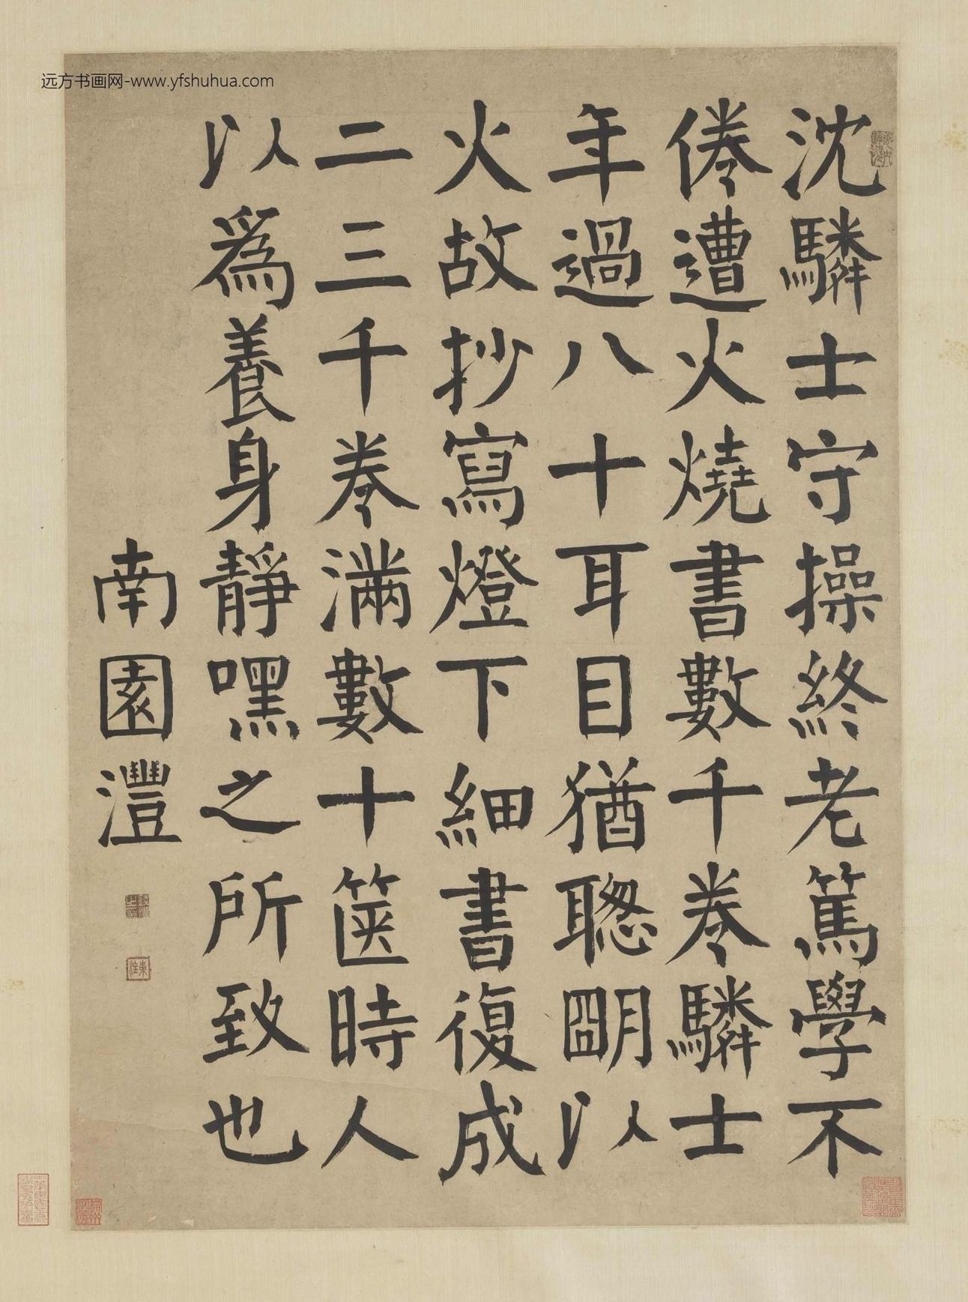 远方书画网-www.yfshuhua.com
沈驎士守操終老篤學不
倦遭火燒書數千卷驎士
年過八十耳目猶聦朙以
火故抄寫燈下細書復成
二三千卷滿數十篋時人
以為養身靜嘿之所致也
南園灃